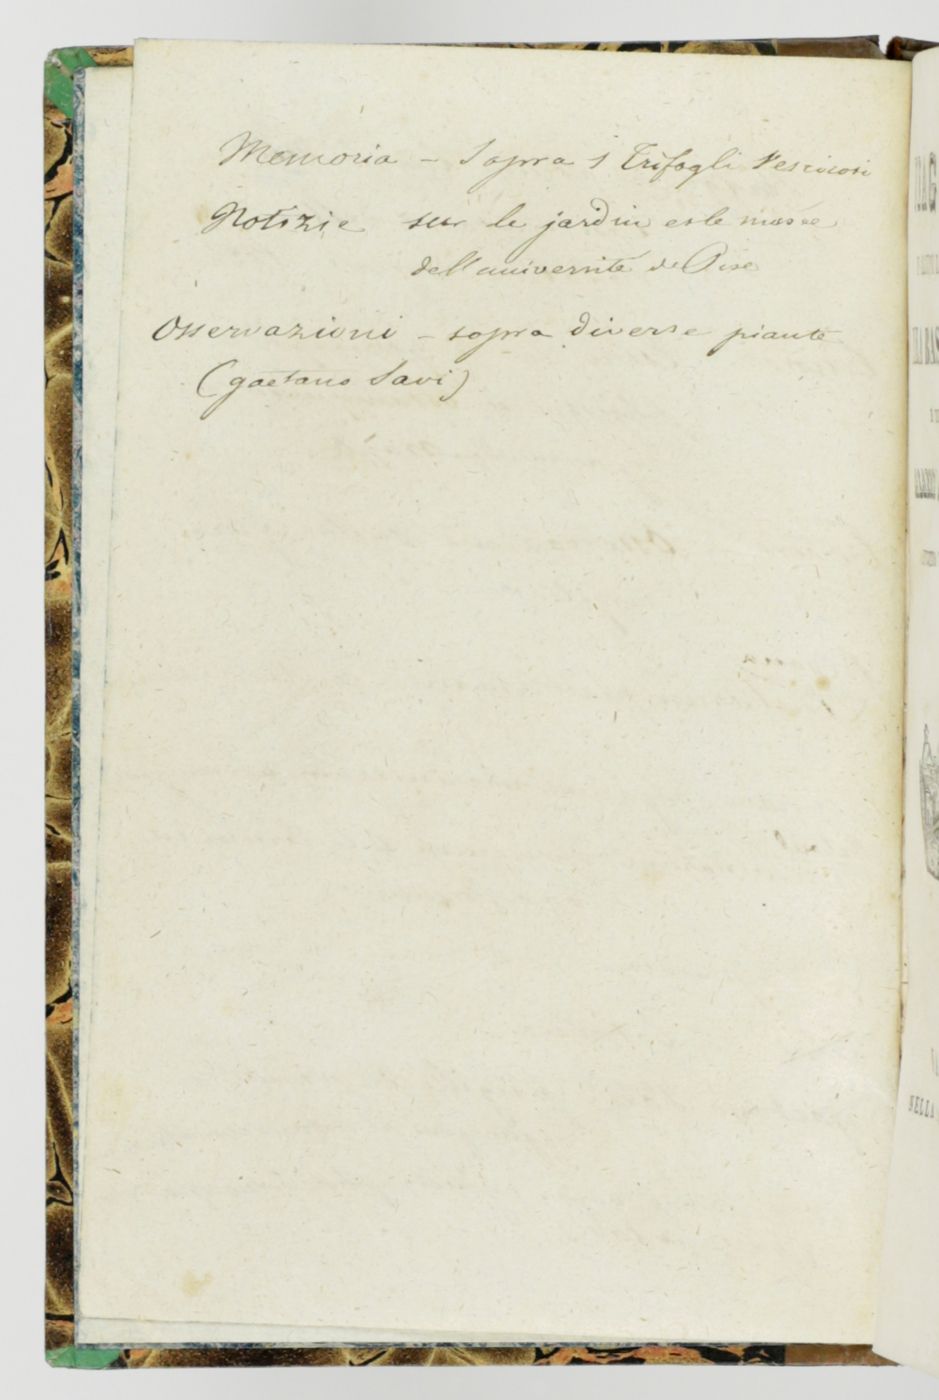 Memoria - Sopra i Trifogli Vescicosi
Notizie sur le jardin et le musée
dell'université de Pise
Osservazioni - sopra diverse piante
(gaetano Savi)
NELLA